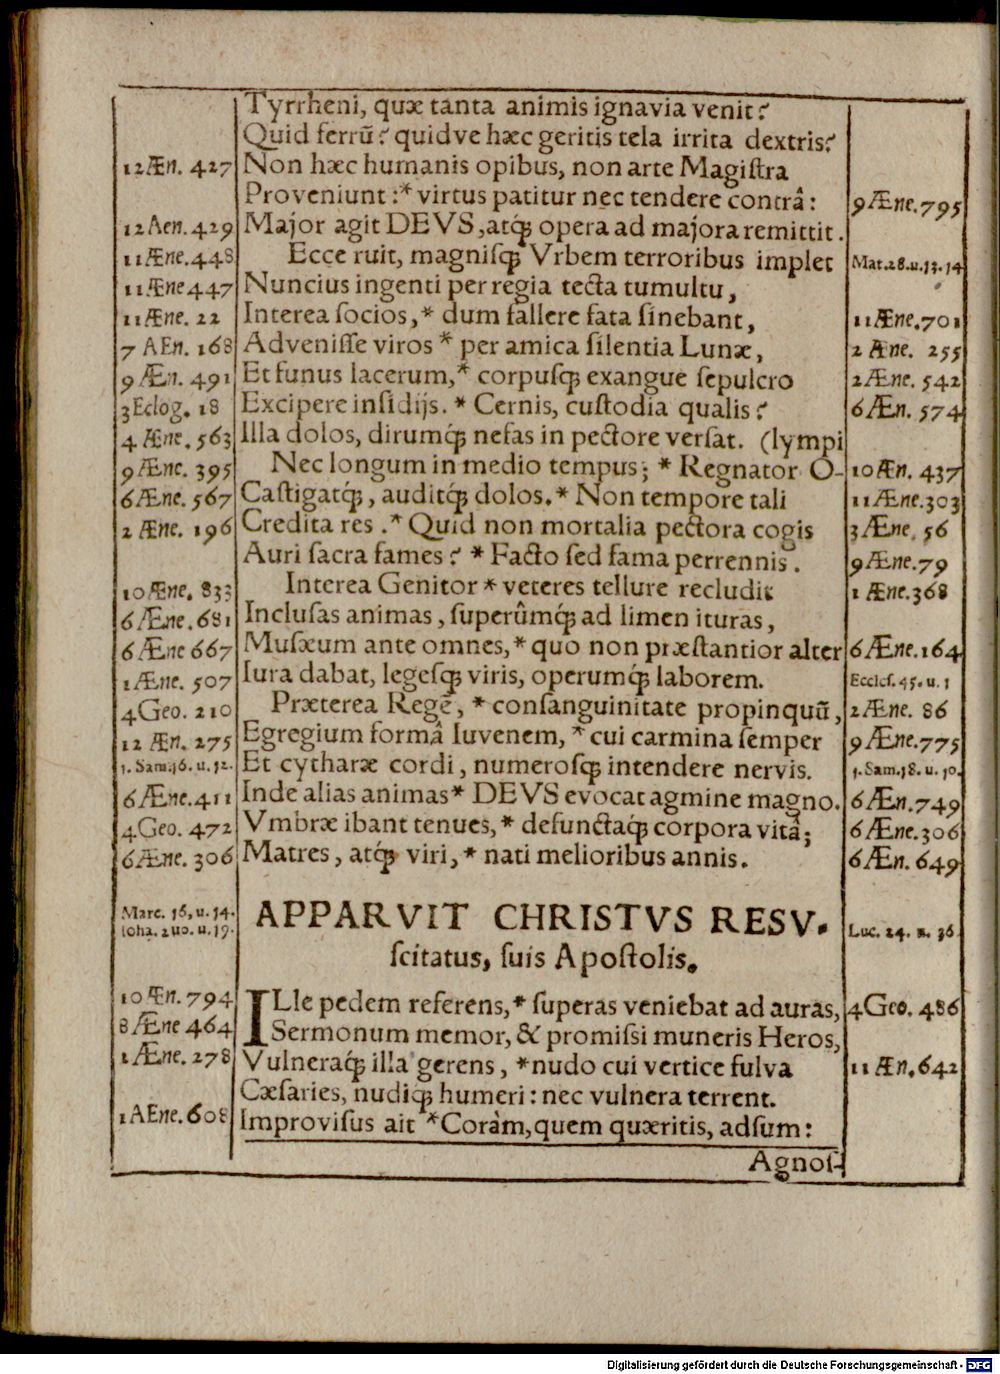 Tyrrheni, quæ tanta animis ignavia venit?
Quid ferrū? quidve hæc geritis tela irrita dextris?
12Æn. 427 Non hæc humanis opibus, non arte Magistra
Proveniunt:* virtus patitur nec tendere contrâ: 9Æne.795
12Aen.429 Major agit DEVS, atq́; opera ad majora remittit.
11Æne.448 Ecce ruit, magnisq́; Vrbem terroribus implet Mat.28.u.13.14
11Æne447 Nuncius ingenti per regia tecta tumultu,
11Æne. 22 Interea socios,* dum fallere fata sinebant, 11Æne.701
7 AEn. 168 Advenisse viros * per amica silentia Lunæ, 2 Æne. 255
9 Æn. 491 Et funus lacerum,* corpusq́; exangue sepulcro 2Æne. 542
3Eclog. 18 Excipere insidijs. * Cernis, custodia qualis? 6Æn. 574
4 Æne. 563 Illa dolos, dirumq́; nefas in pectore versat. (lympi
9Æne. 395 Nec longum in medio tempus; * Regnator O- 10Æn. 437
6Æne. 567 Castigatq́;, auditq́; dolos.* Non tempore tali 11Æne.303
2 Æne. 196 Credita res .* Quid non mortalia pectora cogis 3Æne. 56
Auri sacra fames? * Facto sed fama perrennis. 9Æne.79
10Æne. 833 Interea Genitor * veteres tellure recludit 1 Æne.368
6Æne.681 Inclusas animas, superûmq́; ad limen ituras,
6Æne 667 Musæum ante omnes,* quo non præstantior alter 6Æne.164
1Æne. 507 Iura dabat, legesq́; viris, operumq́; laborem. Eccles.45.u.1
4Geo. 210 Præterea Regē, * consanguinitate propinquū, 2Æne. 86
12 Æn. 275 Egregium formâ Iuvenem, * cui carmina semper 9Æne.775
1. Sam.16.u.12. Et cytharæ cordi, numerosq́; intendere nervis. 1.Sam.18.u.10.
6Æne.411 Inde alias animas* DEVS evocat agmine magno. 6Æn.749
4Geo. 472 Vmbræ ibant tenues,* defunctaq́; corpora vitâ; 6Æne.306
6Æne. 306 Matres, atq́; viri,* nati melioribus annis. 6Æn. 649
Marc. 16,u.14. APPARVIT CHRISTVS RESV-
Ioha. 2uo.u.19. Luc. 24. u. 36.
scitatus, suis Apostolis.
10Æn.794 ILle pedem referens,* superas veniebat ad auras, 4Geo. 486
8Æne 464 Sermonum memor, & promissi muneris Heros,
1Æne. 278 Vulneraq́; illa gerens, *nudo cui vertice fulva 11Æn.642
Cæsaries, nudiq́; humeri: nec vulnera terrent.
1AEne.608 Improvisus ait *Coràm, quem quæritis, adsum:
Agnos-
Digitalisierung gefördert durch die Deutsche Forschungsgemeinschaft - DFG